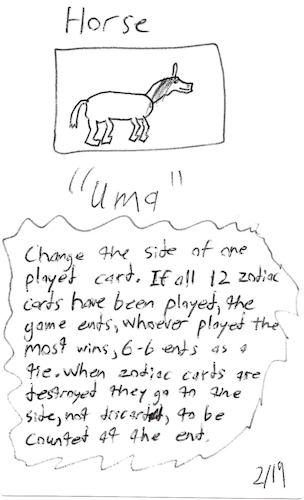 Horse
"Uma"
Change the side of one
played card. If all 12 zodiac
cards have been played, the
game ends, whoever played the
most wins, 6-6 ends as a
tie. When zodiac cards are
destroyed they go to the
side, not discarded, to be
counted at the end.
2/19